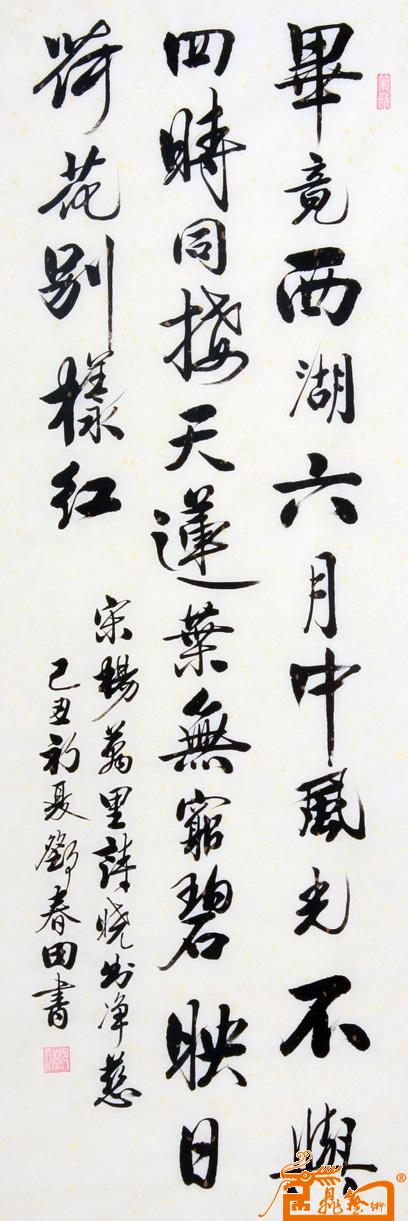 畢竟西湖六月中風光不與
四時同接天蓮葉無窮碧映日
荷花別樣紅
宋楊萬里詩曉出净慈
己丑初夏劉春田書